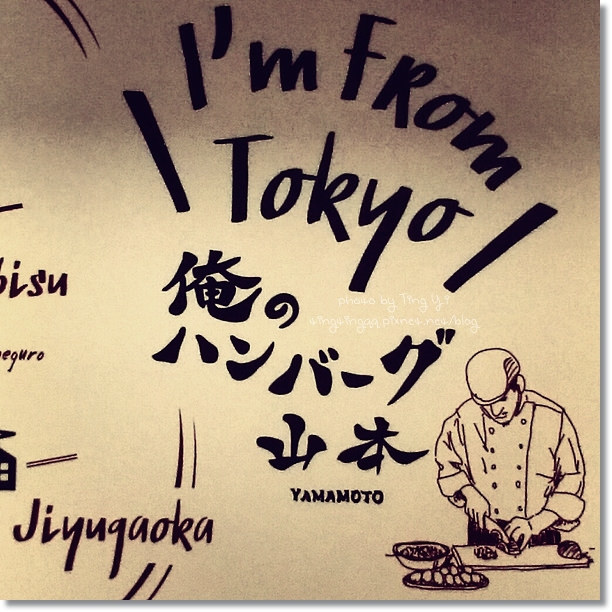 I'm From
Tokyo
俺の
ハンバーグ
山本
YAMAMOTO
photo by Ting Yi
bisu
eguro
Jiyugaoka